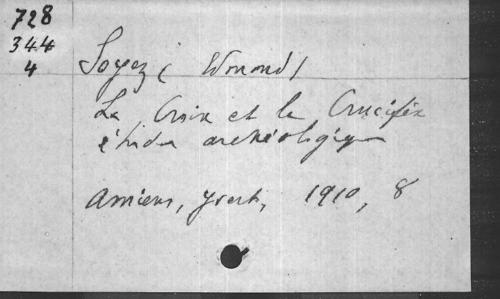 728
344
4
Soyez (Edmond)
La Croix et le Crucifix
étude archéologique
Amiens, Yvert, 1910, 8